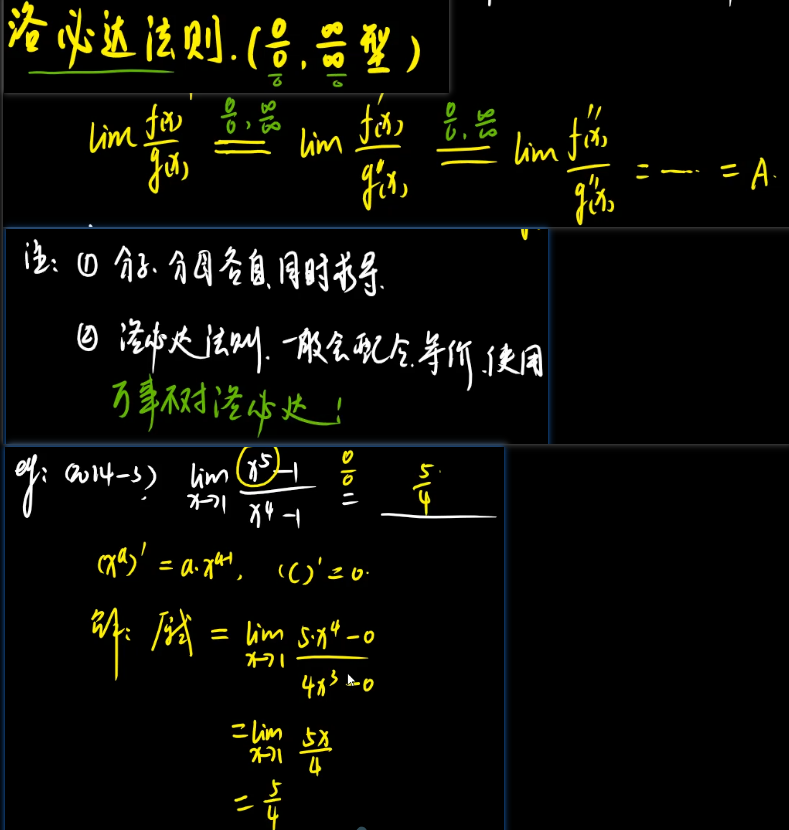 洛必达法则.(0/0, ∞/∞ 型)
lim f(x)/g(x) =(0/0, ∞/∞)= lim f'(x)/g'(x) =(0/0, ∞/∞)= lim f''(x)/g''(x) = …… = A.
注: ① 分子、分母各自、同时求导.
② 洛必达法则、一般会配合、等价、使用
万事不对洛必达!
eg: (2014-3) lim x→1 (x⁵-1)/(x⁴-1) =(0/0)= 5/4
(xᵃ)' = a·xᵃ⁻¹, (C)' = 0.
解: 原式 = lim x→1 (5·x⁴-0)/(4x³-0)
= lim x→1 5x/4
= 5/4